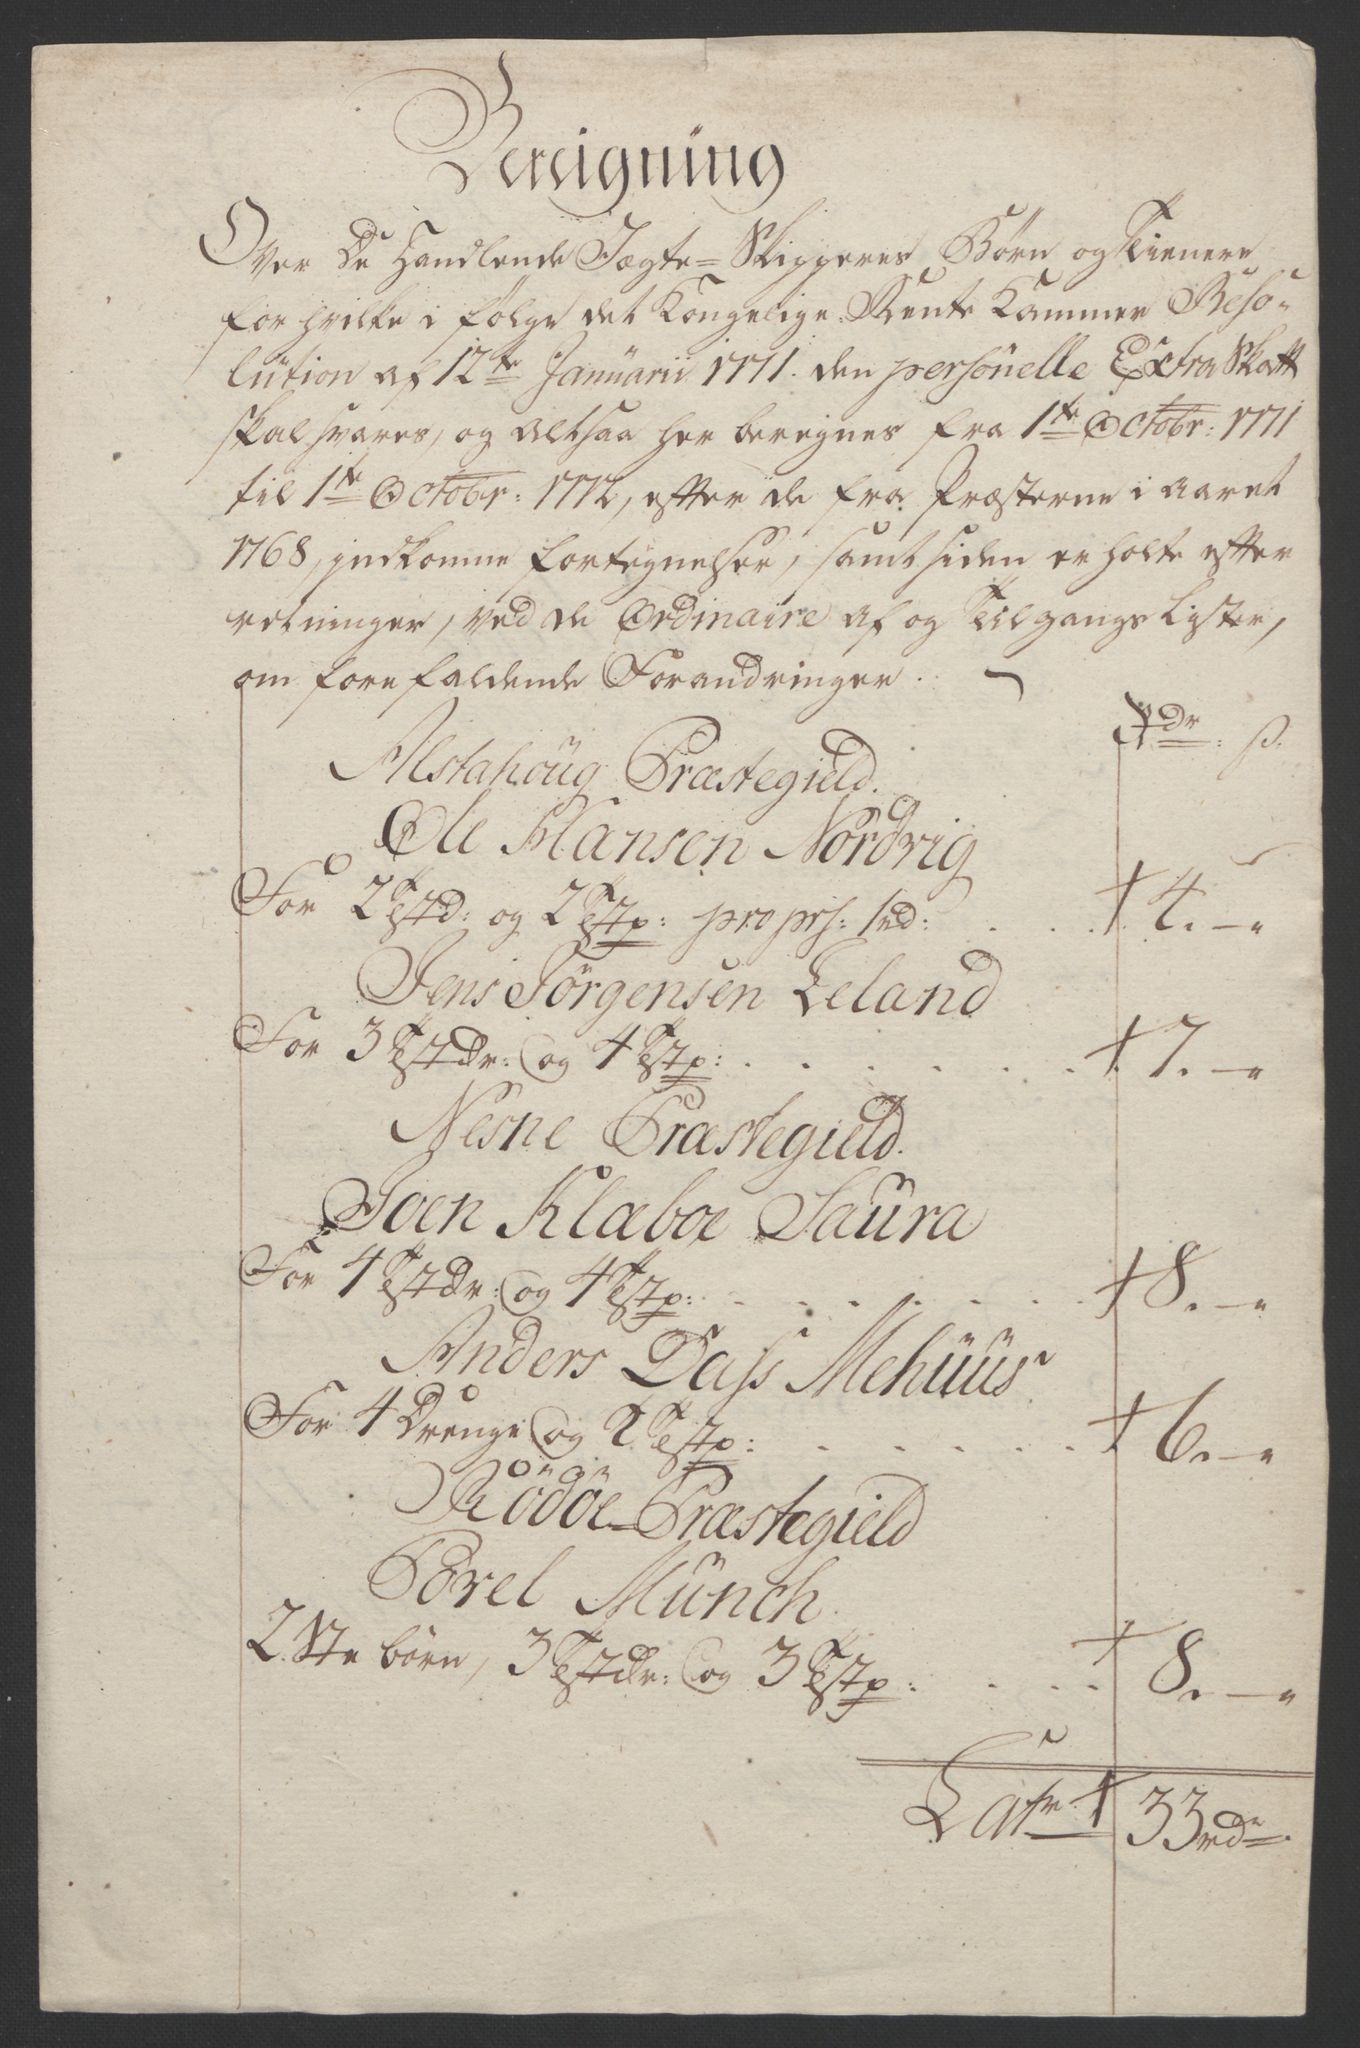 Bereigning
Over De Handlende Jægte=Skipperes Börn og Tienere
for hvilke i fölge det Kongelige Rente Kammer Reso-
lution af 12te Januarii 1771. den personelle Extra Skatt
skal svares, og altsaa her beregnes fra 1te Octobr: 1771
til 1te Octobr: 1772, efter de fra Præsterne i aaret
1768, indkomne fortegnelser, samt siden erholte efter
retninger, ved de Ordinaire af og Tilgangs Lister,
om forefaldende Forandringer.
Rdr: ß.
Alstahoug Præstegield.
Ole Hansen Nordvig
For 2 Testd: og 2 Testp: pro prs: 1rd: 4. - "
Jens Jörgensen Leland
For 3 Testdr: og 4 Testp: 7. - "
Nesne Præstegield.
Joen Klæboe Saura
For 4 Testdr: og 4 Testp: 8. - "
Anders Dass Mehuus
For 4 Drenge og 2 Testp: 6. - "
Rödöe Præstegield
Porel Munch.
2 Ste börn, 3 Testdr: og 3 Testp: 8. - "
Latr 33rdr.